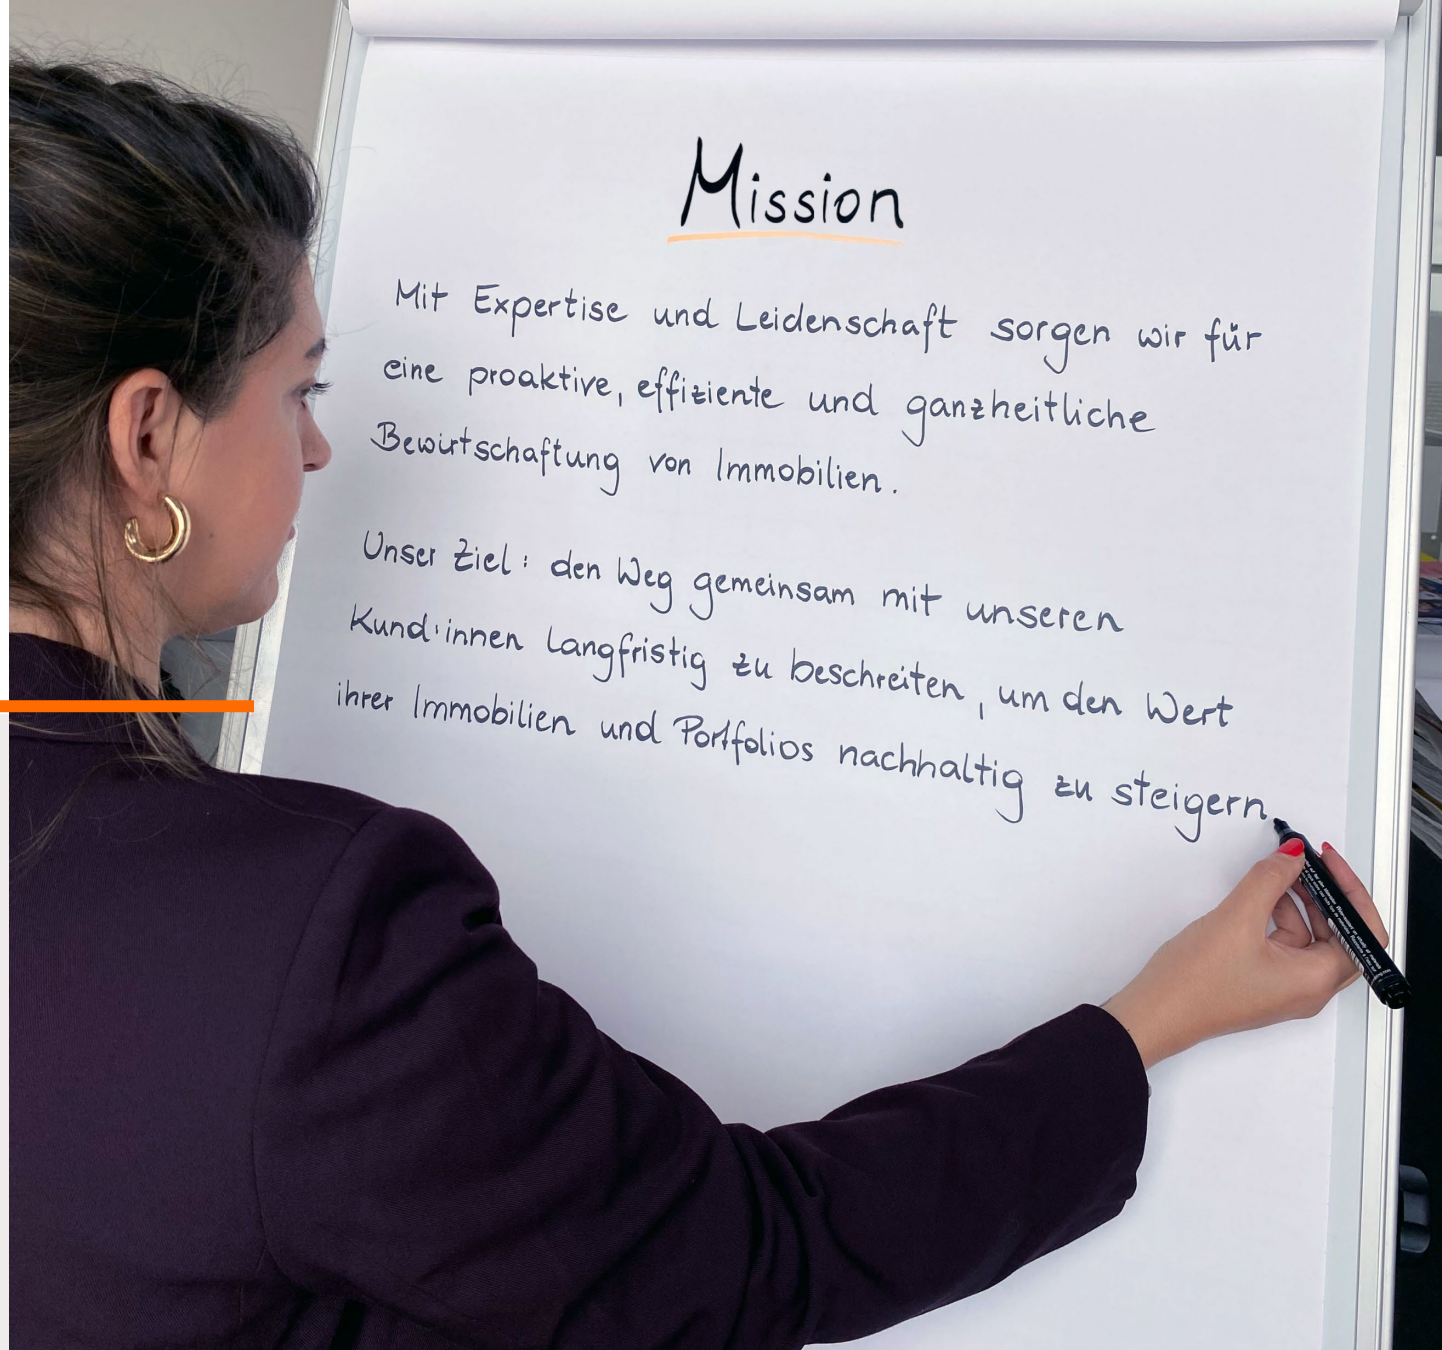 Mission
Mit Expertise und Leidenschaft sorgen wir für
eine proaktive, effiziente und ganzheitliche
Bewirtschaftung von Immobilien.
Unser Ziel: den Weg gemeinsam mit unseren
Kund:innen langfristig zu beschreiten, um den Wert
ihrer Immobilien und Portfolios nachhaltig zu steigern